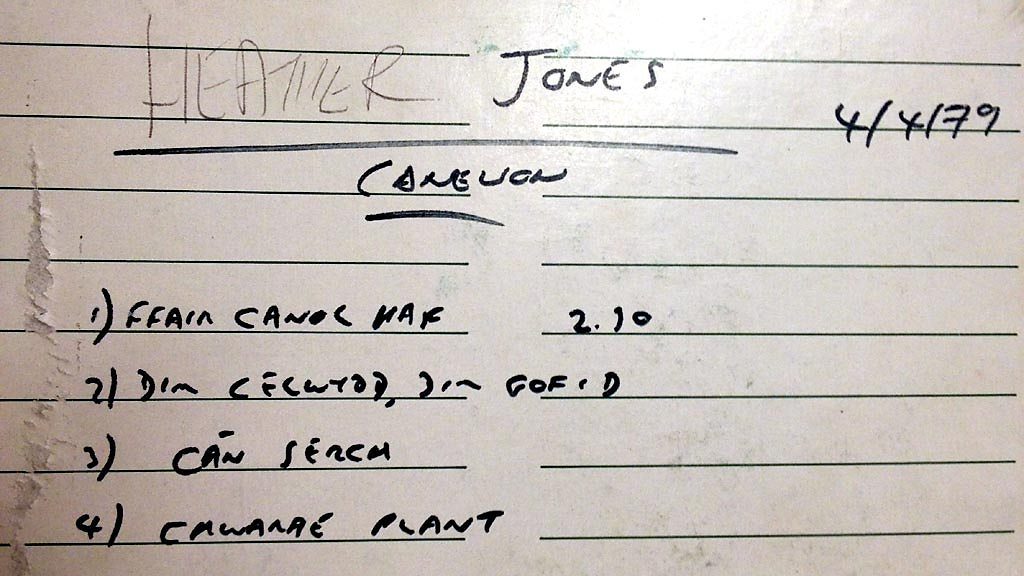 HEATHER JONES
4/4/79
CANEUON
1) FFAIR CANOL HAF 2.10
2) DIM CELWYDD, DIM GOFID
3) CÂN SERCH
4) CHWARAE PLANT